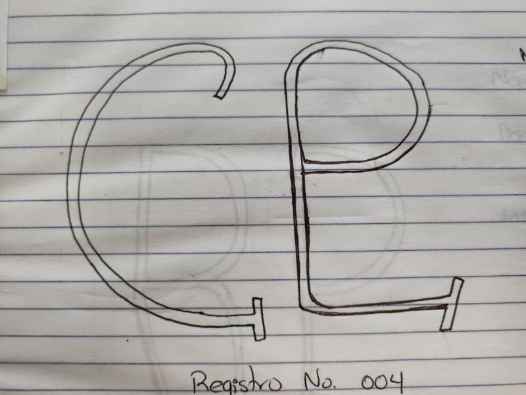 CP
Registro No. 004